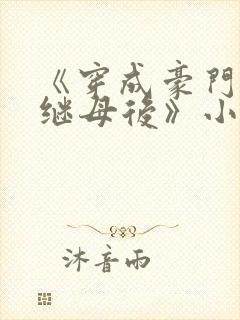 《穿成豪門
继母後》小
沐音雨